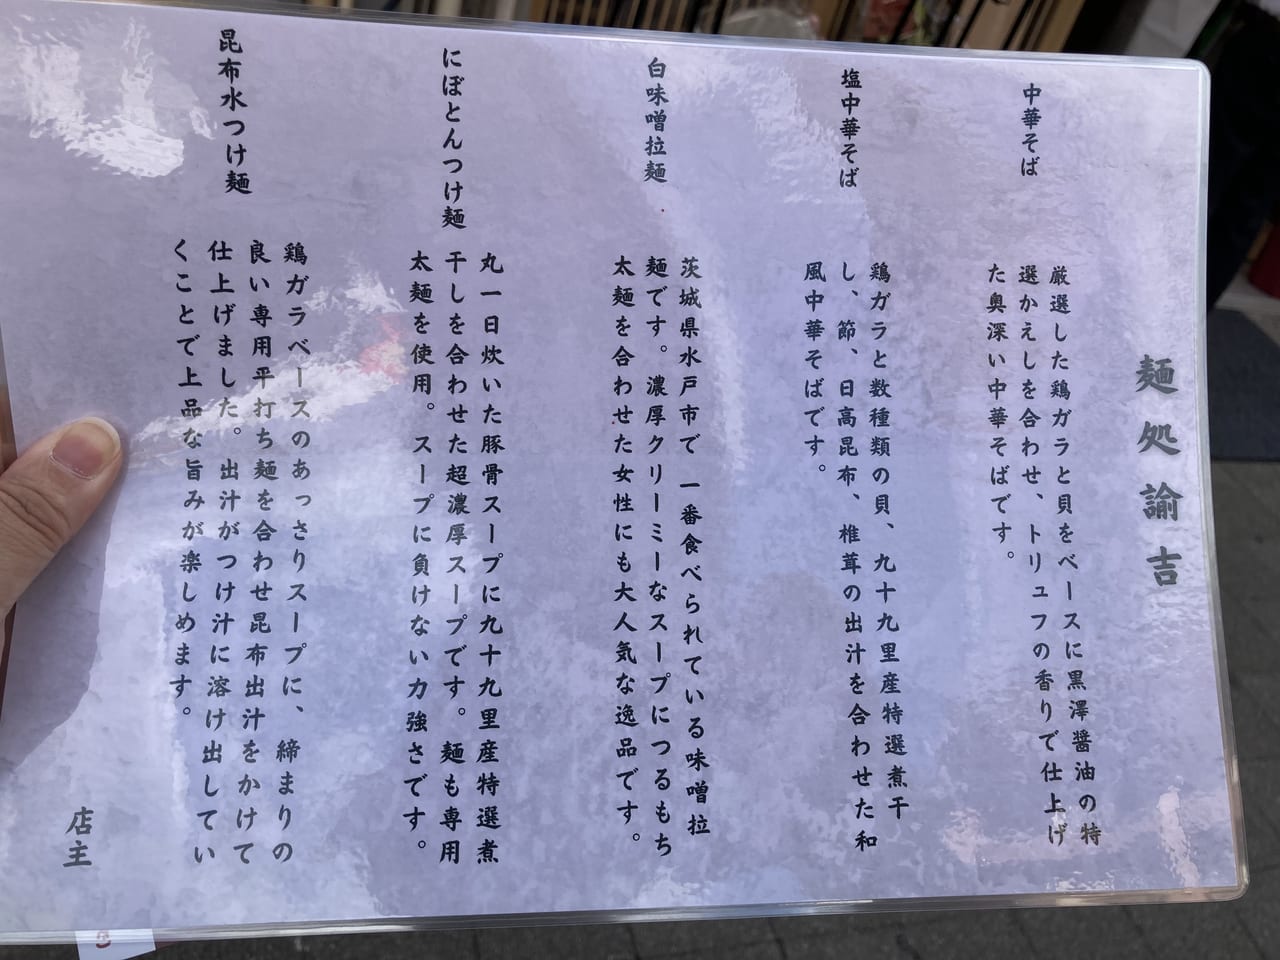 麺処 諭吉
中華そば
厳選した鶏ガラと貝をベースに黒澤醤油の特
選かえしを合わせ、トリュフの香りで仕上げ
た奥深い中華そばです。
塩中華そば
鶏ガラと数種類の貝、九十九里産特選煮干
し、節、日高昆布、椎茸の出汁を合わせた和
風中華そばです。
白味噌拉麺
茨城県水戸市で一番食べられている味噌拉
麺です。濃厚クリーミーなスープにつるもち
太麺を合わせた女性にも大人気な逸品です。
にぼとんつけ麺
丸一日炊いた豚骨スープに九十九里産特選煮
干しを合わせた超濃厚スープです。麺も専用
太麺を使用。スープに負けない力強さです。
昆布水つけ麺
鶏ガラベースのあっさりスープに、締まりの
良い専用平打ち麺を合わせ昆布出汁をかけて
仕上げました。出汁がつけ汁に溶け出してい
くことで上品な旨みが楽しめます。
店主